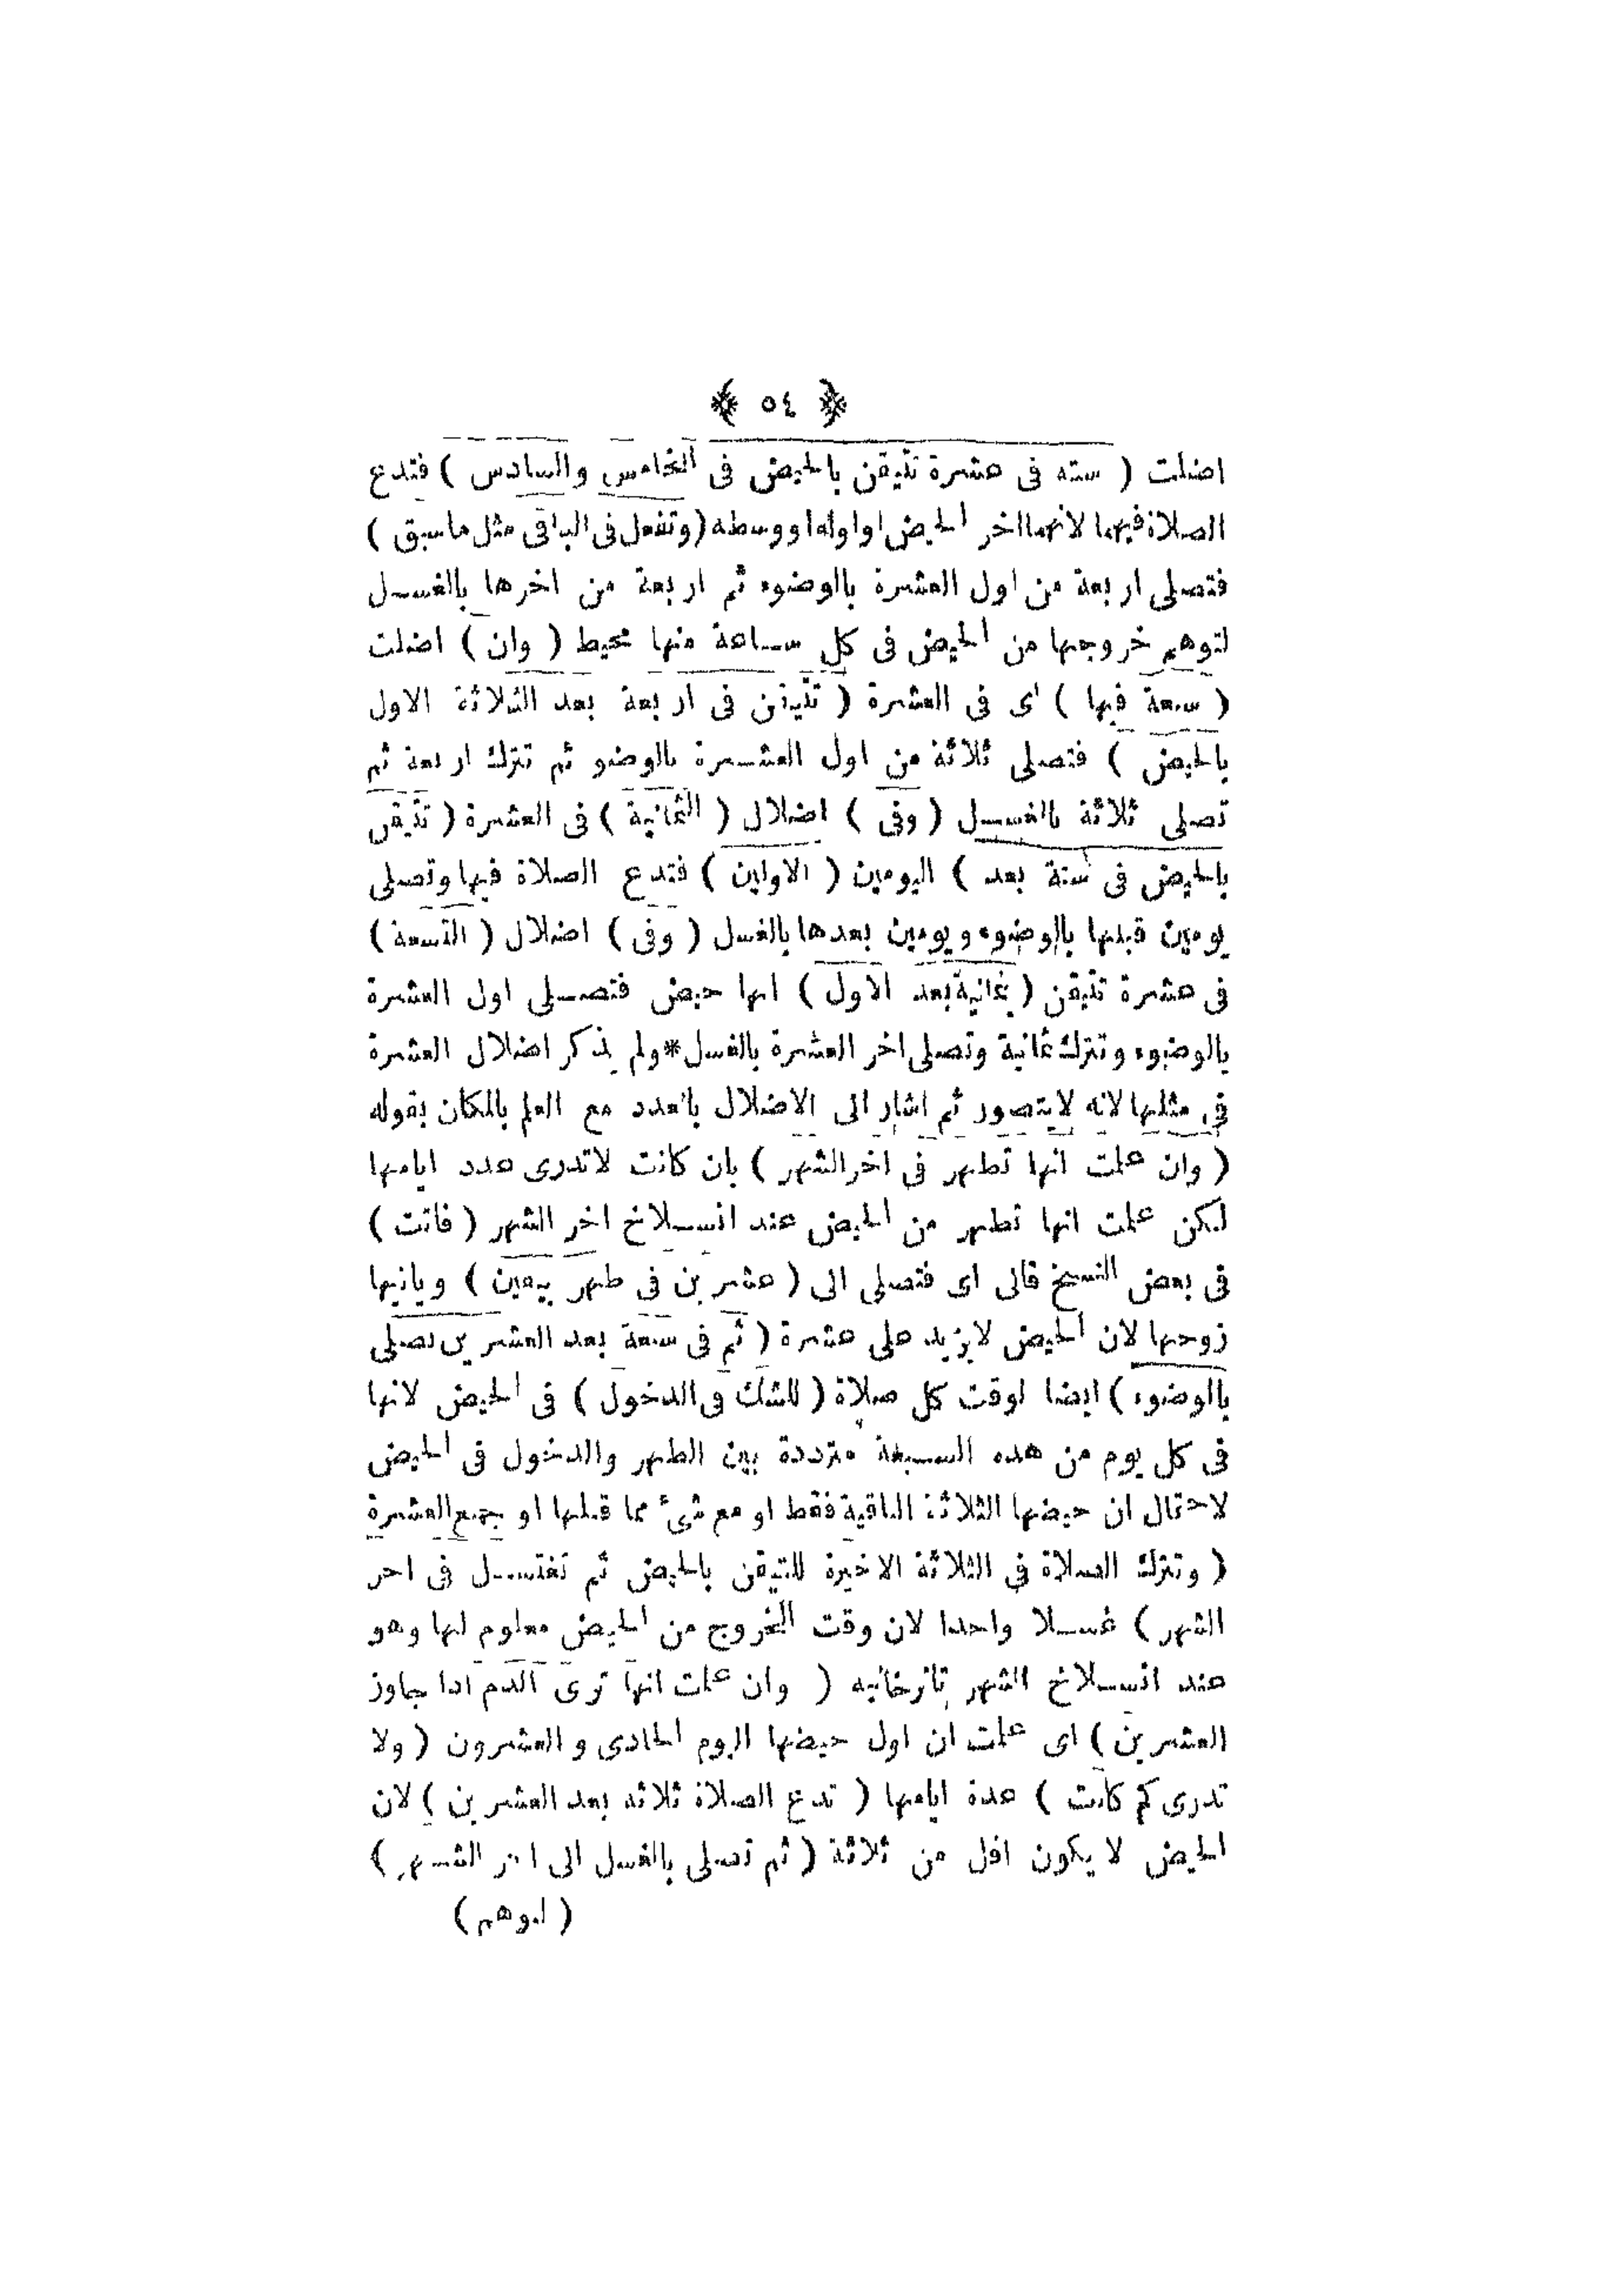 ﴿ ٥٤ ﴾
اضلت ( ستة فى عشرة تتيقن بالحيض فى الخامس والسادس ) فتدع
الصلاة فيهما لانهما اخر الحيض او اوله او وسطه ( وتفعل فى الباقى مثل ما سبق )
فتصلى اربعة من اول العشرة بالوضوء ثم اربعة من اخرها بالغسل
لتوهم خروجها من الحيض فى كل ساعة منها محيط ( وان ) اضلت
( سبعة فيها ) اى فى العشرة ( تتيقن فى اربعة بعد الثلاثة الاول
بالحيض ) فتصلى ثلاثة من اول العشرة بالوضو ثم تترك اربعة ثم
تصلى ثلاثة بالغسل ( وفى ) اضلال ( الثمانية ) فى العشرة ( تتيقن
بالحيض فى ستة بعد ) اليومين ( الاولين ) فتدع الصلاة فيها وتصلى
يومين قبلها بالوضوء ويومين بعدها بالغسل ( وفى ) اضلال ( التسعة )
فى عشرة تتيقن ( بثمانية بعد الاول ) انها حيض فتصلى اول العشرة
بالوضوء وتترك ثمانية وتصلى اخر العشرة بالغسل * ولم يذكر اضلال العشرة
فى مثلها لانه لايتصور ثم اشار الى الاضلال بالعدد مع العلم بالمكان بقوله
( وان علمت انها تطهر فى اخر الشهر ) بان كانت لاتدرى عدد ايامها
لكن علمت انها تطهر من الحيض عند انسلاخ اخر الشهر ( فانت )
فى بعض النسخ قالى اى فتصلى الى ( عشرين فى طهر بيقين ) ويأتيها
زوجها لان الحيض لايزيد على عشرة ( ثم فى سبعة بعد العشرين تصلى
بالوضوء ) ايضا لوقت كل صلاة ( للشك فى الدخول ) فى الحيض لانها
فى كل يوم من هذه السبعة مترددة بين الطهر والدخول فى الحيض
لاحتمال ان حيضها الثلاثة الباقية فقط او مع شئ مما قبلها او جميع العشرة
( وتترك الصلاة فى الثلاثة الاخيرة للتيقن بالحيض ثم تغتسل فى اخر
الشهر ) غسلا واحدا لان وقت الخروج من الحيض معلوم لها وهو
عند انسلاخ الشهر تاترخانيه ( وان علمت انها ترى الدم اذا جاوز
العشرين ) اى علمت ان اول حيضها اليوم الحادى والعشرون ( ولا
تدرى كم كانت ) عدة ايامها ( تدع الصلاة ثلاثة بعد العشرين ) لان
الحيض لا يكون اقل من ثلاثة ( ثم تصلى بالغسل الى اخر الشهر )
( لتوهم )